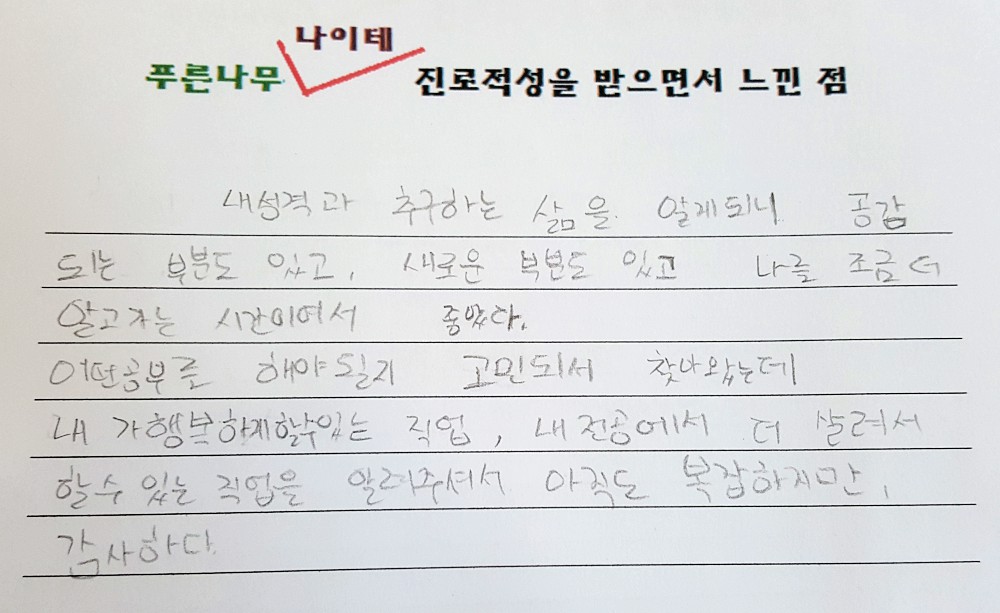 나이테
푸른나무 진로적성을 받으면서 느낀 점
내성격과 추구하는 삶을 알게되니 공감
되는 부분도 있고, 새로운 부분도 있고 나를 조금더
알고가는 시간이어서 좋았다.
어떤공부를 해야될지 고민되서 찾아왔는데
내가행복하게할수있는 직업, 내전공에서 더 살려서
할수 있는 직업을 알려주셔서 아직도 복잡하지만,
감사하다.